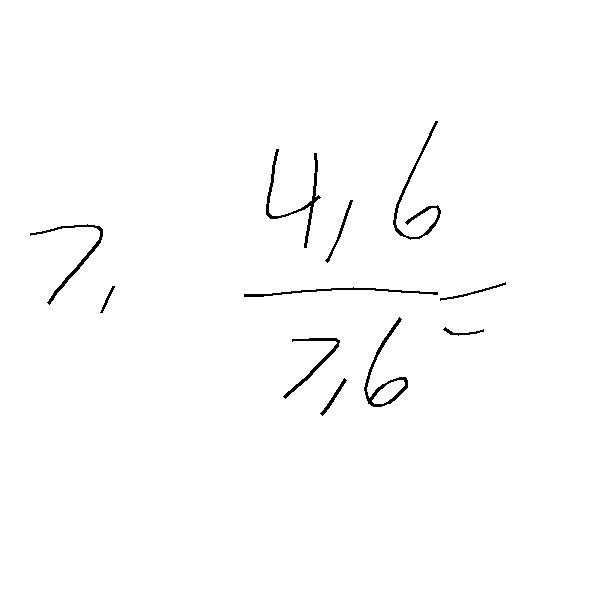 7, 4,6
7,6 =